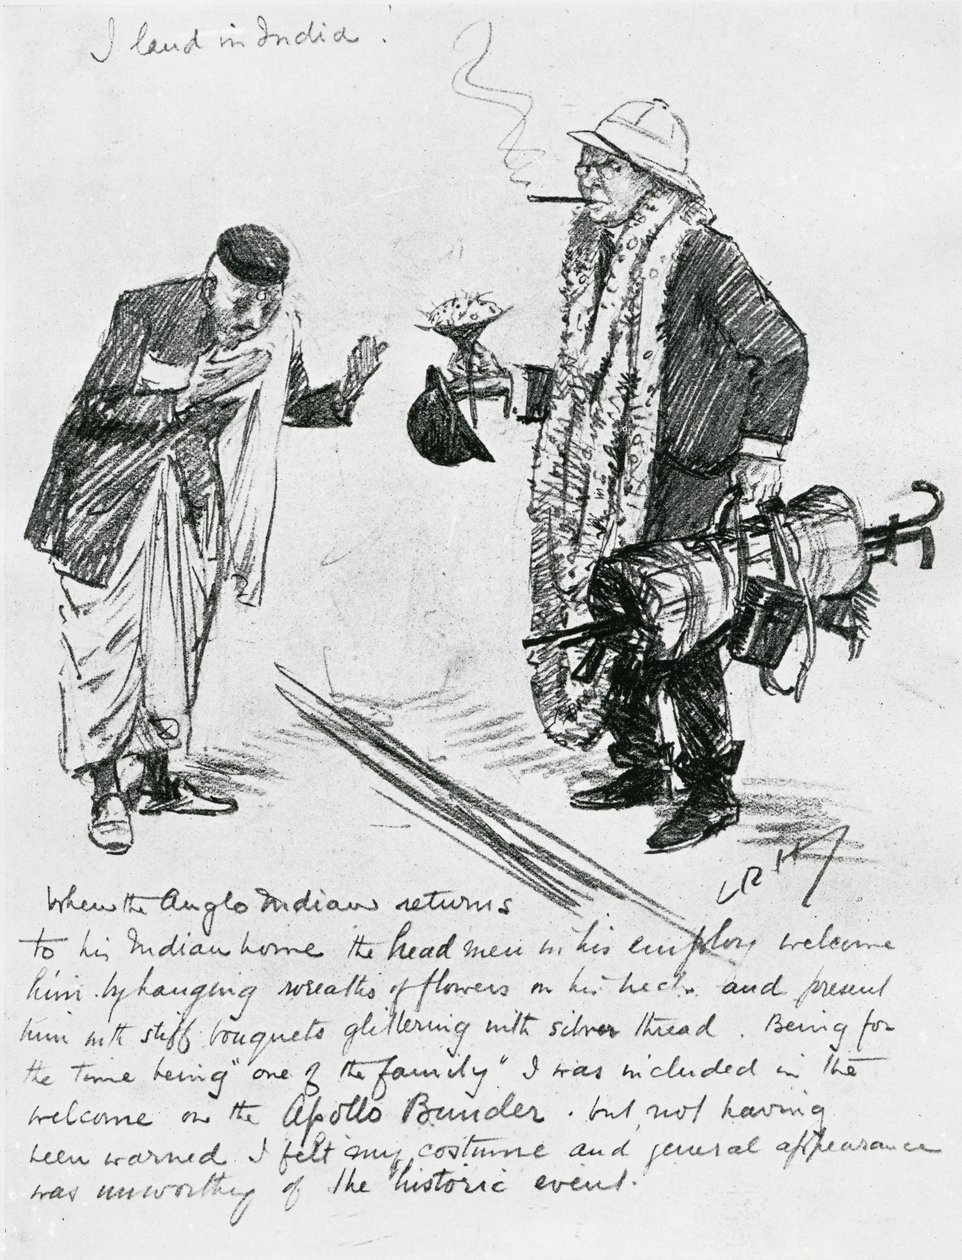 I land in India.
When the Anglo Indian returns
to his Indian home the head men in his employ welcome
him by hanging wreaths of flowers on his neck and present
him with stiff bouquets glittering with silver thread. Being for
the time being "one of the family" I was included in the
welcome on the Apollo Bunder. but not having
been warned I felt my costume and general appearance
was unworthy of the historic event.